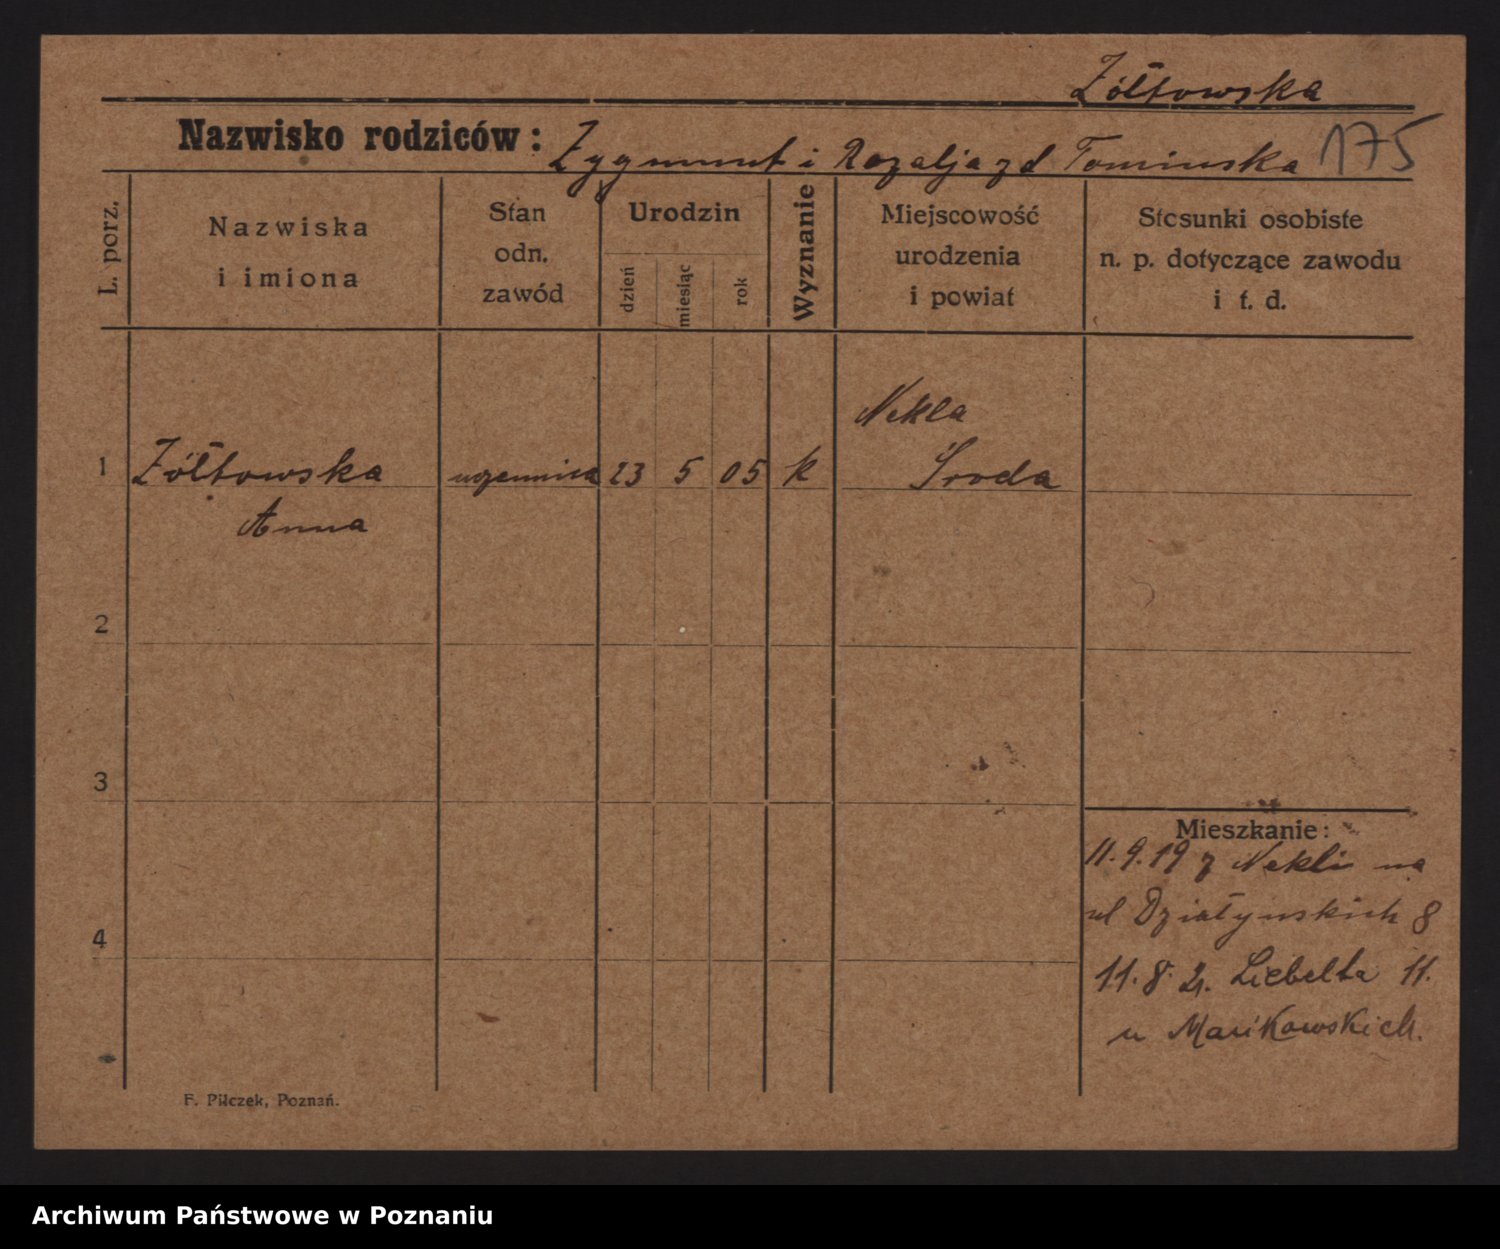 Żółtowska
Nazwisko rodziców: Zygmunt i Rozalja z d Tomińska 175
L. porz.
Nazwiska
i imiona
Stan
odn.
zawód
Urodzin
dzień
miesiąc
rok
Wyznanie
Miejscowość
urodzenia
i powiat
Stosunki osobiste
n. p. dotyczące zawodu
i t. d.
Nekla
1 Żółtowska uczennica 23 5 05 k Środa
Anna
2
3
4
Mieszkanie:
11.9.19 z Nekli na
ul Działyńskich 8
11.8.21. Liebelta 11.
u Mańkowskich.
F. Pilczek, Poznań.
Archiwum Państwowe w Poznaniu